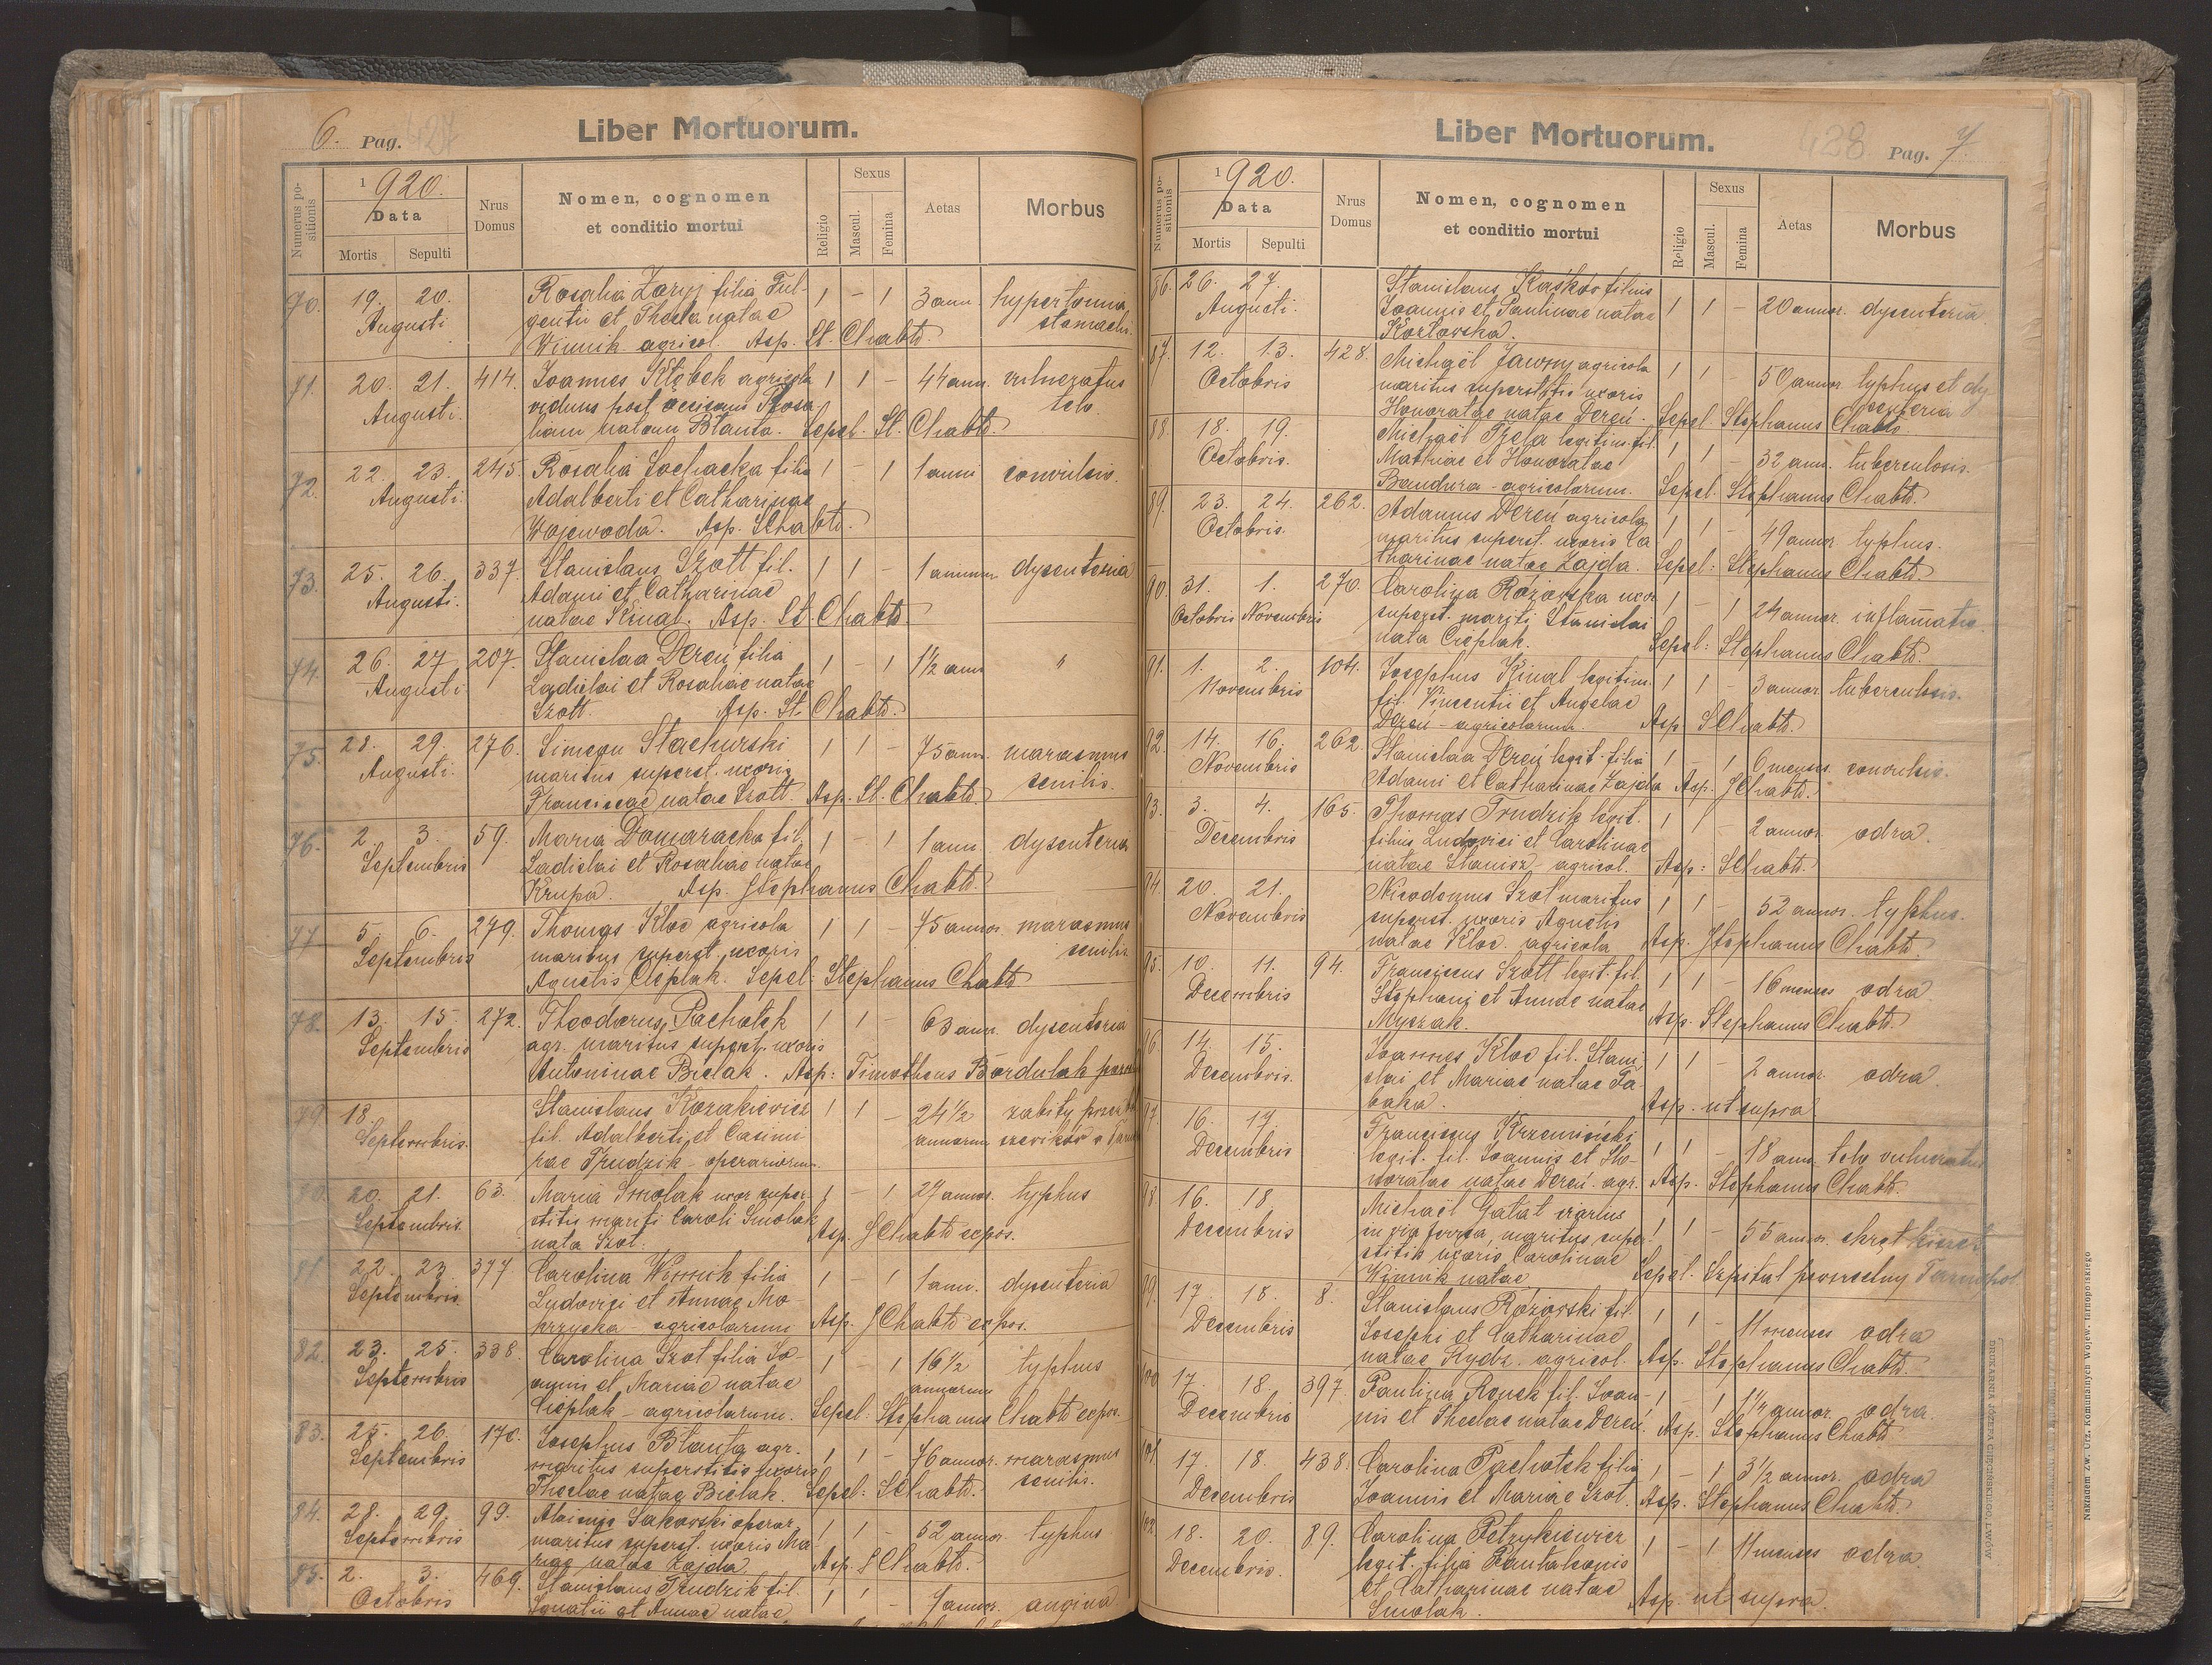 6. Pag. 427
Liber Mortuorum.
Numerus positionis
1920.
Data
Mortis
Sepulti
Nrus Domus
Nomen, cognomen
et conditio mortui
Religio
Sexus
Mascul.
Femina
Aetas
Morbus
70. 19. 20. Rosalia Zaryj filia Ful- 1 - 1 3 ann. hypertonia
Augusti gentii et Thecla natae stomachi.
Winnik agricol. Asp. St. Chabło.
71. 20. 21. 414. Joannes Kłębek agricola 1 1 - 44 ann. vulneratus
Augusti. viduus post occisam Rosa telo.
liam natam Blanta. Sepel. St. Chabło.
72. 22. 23. 245. Rosalia Sochacka filia 1 - 1 1 anni convulsio.
Augusti Adalberti et Catharinae
Wojewoda. Asp. SChabło.
73. 25. 26. 337. Stanislaus Szott fil. 1 1 - 1 annum dysenteria
Augusti. Adami et Catharinae
natae Kinal. Asp. St. Chabło
74. 26. 27 207. Stanislaa Dereń filia 1 - 1 1½ ann "
Augusti Ladislai et Rosaliae natae
Szott. Asp. St. Chabło.
75. 28. 29. 276. Simeon Stachurski 1 1 - 75 ann. marasmus
Augusti. maritus superst. uxoris senilis.
Franciscae natae Szott. Asp. St. Chabło.
76. 2. 3. 59. Maria Domaracka fil. 1 - 1 1 ann. dysenteria
Septembris Ladislai et Rosaliae natae
Krupa. Asp. Stephanus Chabło.
77 5. 6. 279. Thomas Kloc agricola 1 1 - 75 annor. marasmus
Septembris maritus superst. uxoris senilis
Agnetis Cieplak. Sepel: Stephanus Chabło
78. 13. 15. 272. Theodorus Pachołek 1 1 - 63 ann. dysenteria
Septembris agr. maritus superst. uxoris
Antoninae Bielak. Asp: Timotheus Bordulak
79. 18. Stanislaus Kozakiewicz 1 1 - 24½ zabity przez
Septembris. fil. Adalberti et Casimi annorum
rae Trudzik - operariorum.
80. 20. 21. 63. Maria Smolak uxor super- 1 - 1 27 annor. typhus
Septembris. stitis mariti Caroli Smolak
nata Szot. Asp. SChabło expos.
81 22. 23 377. Carolina Winnik filia 1 - 1 1 ann. dysenteria
Septembris. Ludovici et Annae Mo-
przycka - agricolarum Asp. SChabło expos.
82. 23. 25. 338. Carolina Szot filia Jo- 1 - 1 16½ typhus
Septembris annis et Mariae natae annorum
Cieplak - agricolarum. Sepel: Stephanus Chabło expos.
83. 25. 26. 170. Josephus Blanta agr. 1 1 - 76 annor. marasmus
Septembris maritus superstitis uxoris senilis.
Theclae natae Bielak. Sepel: SChabło.
84. 28. 29. 99. Sakowski operar. 1 1 - 52 annor typhus
Septembris maritus superst. uxoris Ma-
riae natae Zajda Asp. SChabło.
85. 2. 3. 469. Stanislaus Trudzik fil. 1 1 - 7 annor. angina
Octobris Ignatii et Annae natae
Liber Mortuorum.
428 Pag. 7.
Numerus positionis
1920.
Data
Mortis
Sepulti
Nrus Domus
Nomen, cognomen
et conditio mortui
Religio
Sexus
Mascul.
Femina
Aetas
Morbus
86. 26. 27. Stanislaus Kaśków filius 1 1 - 20 annor. dysenteria
Augusti. Joannis et Paulinae natae
Kozłowska.
87. 12. 13. 428. Michael Jawny agricola 1 1 - 50 annor typhus et dy-
Octobris maritus superstitis uxoris senteria
Honoratae natae Dereń. Sepel: Stephanus Chabło.
88. 18. 19. Michaël Trela legitim. fil. 1 1 - 32 ann. tuberculosis.
Octobris. Mathiae et Honoratae
Bandura - agricolarum. Sepel: Stephanus Chabło.
89. 23. 24. 262. Adamus Dereń agricola 1 1 - 49 annor typhus.
Octobris. maritus superst. uxoris Ca
tharinae natae Zajda. Sepel: Stephanus Chabło
90. 31. 1. 270. Carolina Różowska uxor 1 - 1 24 annor. inflammatio.
Octobris Novembris superst. mariti Stanislai
nata Cieplak. Sepel: Stephanus Chabło.
91. 1. 2. 104. Josephus Kinal legitim. 1 1 - 3 annor tuberculosis.
Novembris fil. Vincentii et Angelae
Dereń - agricolarum. Asp SChabło.
92. 14. 16. 262. Stanislaa Dereń legit. filia 1 - 1 6 menses. convulsio.
Novembris Adami et Catharinae Zajda Asp. SChabło.
93. 3. 4. 165. Thomas Trudzik legit. 1 1 - 2 annor. odra.
Decembris filius Ludovici et Carolinae
natae Stanisz - agricol. Asp: SChabło.
94. 20. 21. Nicodemus Szot maritus 1 1 - 52 annor. typhus.
Novembris superst. uxoris Agnetis
natae Kloc. agricola Asp. Stephanus Chabło.
95. 10. 11. 94. Franciscus Szott legit. fil. 1 1 - 16 menses odra
Decembris Stephani et Annae natae
Myczak. Asp. Stephanus Chabło.
96. 14. 15. Joannes Kloc fil. Stani 1 1 - 2 annor. odra.
Decembris. slai et Mariae natae Ta-
baka. Asp. ut supra
97 16. 17. Franciscus Krzemiński 1 1 - 18 ann. telo vulneratus
Decembris legit. fil. Joannis et Ho-
noratae natae Dereń. agr. Asp. Stephanus Chabło.
98 16. 18 Michaël Gałat 1 1 - 55 annor. skręt kiszek
Decembris in via ferrea, maritus super-
stitis uxoris Carolinae
Winnik natae Sepel. Szpital powszechny Tarnopol.
99. 17. 18. 8. Stanislaus Różowski fil. 1 1 - 11 menses odra
Decembris Josephi et Catharinae
natae Rydz. agricol. Asp. Stephanus Chabło.
100 17. 18. 397. Paulina Ronek fil. Joan- 1 - 1 1¼ annor. odra.
Decembris nis et Theclae natae Dereń. Asp. Stephanus Chabło
101. 17. 18. 438. Carolina Pachołek filia 1 - 1 3½ annor. odra
Decembris Joannis et Mariae Szot. Asp. Stephanus Chabło.
102. 18. 20. 89. Carolina Petrykiewicz 1 - 1 11 menses odra
Decembris. legit. filia Pantaleonis
et Catharinae natae
Smolak. Asp. ut supra.
Nakładem Zw. Urz. Komunalnych Wojew. tarnopolskiego
DRUKARNIA JÓZEFA CIEPIELSKIEGO, LWÓW